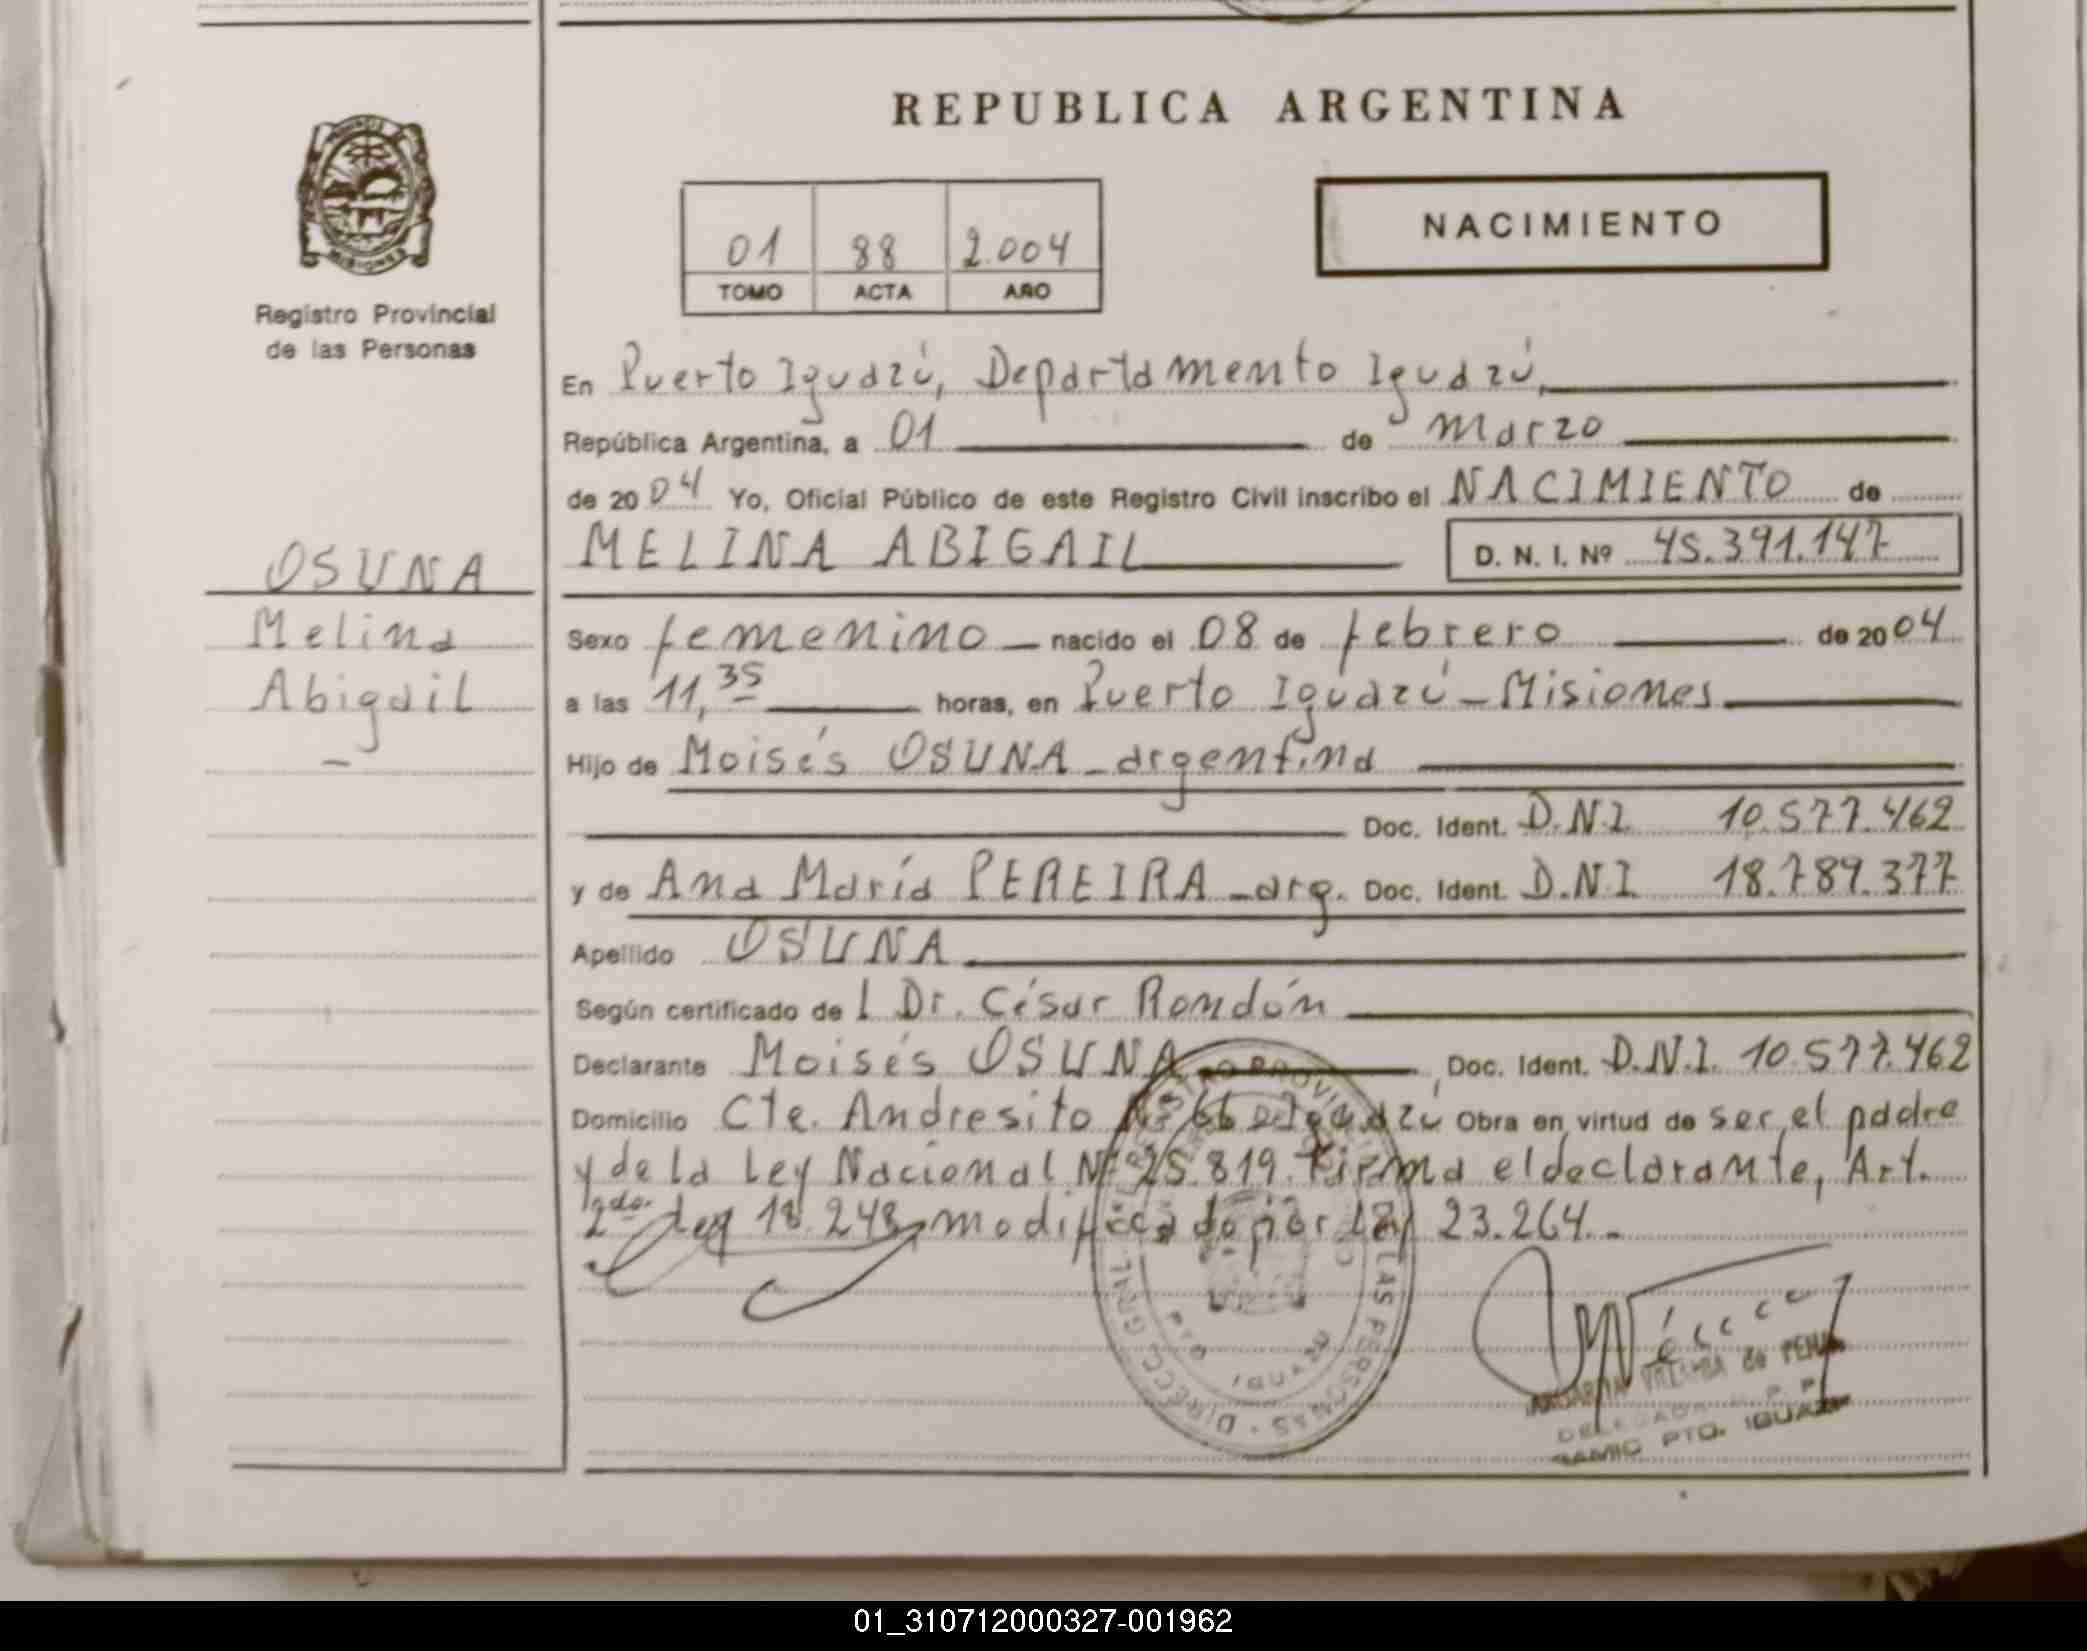 REPUBLICA ARGENTINA
PROVINCIA
MISIONES
Registro Provincial
de las Personas
01 88 2.004
TOMO ACTA AÑO
NACIMIENTO
En Puerto Iguazú, Departamento Iguazú,
República Argentina, a 01 de Marzo
de 2004 Yo, Oficial Público de este Registro Civil inscribo el NACIMIENTO de
MELINA ABIGAIL D. N. I. Nº 45.391.147
OSUNA
Melina
Abigail
Sexo femenino nacido el 08 de febrero de 2004
a las 11,35 horas, en Puerto Iguazú - Misiones
Hijo de Moisés OSUNA - argentina
Doc. Ident. D.N.I 10.577.462
y de Ana María PEREIRA - arg. Doc. Ident. D.N.I 18.789.377
Apellido OSUNA
Según certificado de l Dr. César Rondón
Declarante Moisés OSUNA, Doc. Ident. D.N.I. 10.577.462
Domicilio Cte. Andresito Nº 66 Iguazú Obra en virtud de ser el padre
y de la Ley Nacional Nº 25.819. Firma el declarante, Art.
2do. Ley 18.248, modificado por Ley 23.264.-
DIRECC. GRAL. REGISTRO PROVINCIAL DE LAS PERSONAS
PTO IGUAZU
de PENA
DELEGADA R. P. P.
SAMIC PTO. IGUAZU
01_310712000327-001962